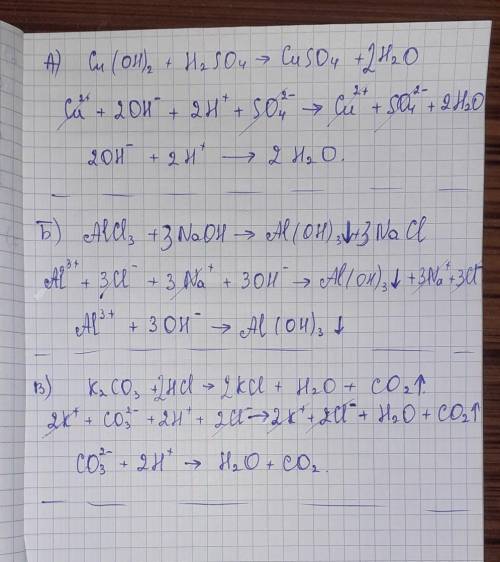 А) Cu(OH)₂ + H₂SO₄ → CuSO₄ + 2H₂O
Cu²⁺ + 2OH⁻ + 2H⁺ + SO₄²⁻ → Cu²⁺ + SO₄²⁻ + 2H₂O
2OH⁻ + 2H⁺ → 2H₂O.
Б) AlCl₃ + 3NaOH → Al(OH)₃↓ + 3NaCl
Al³⁺ + 3Cl⁻ + 3Na⁺ + 3OH⁻ → Al(OH)₃↓ + 3Na⁺ + 3Cl⁻
Al³⁺ + 3OH⁻ → Al(OH)₃↓
В) K₂CO₃ + 2HCl → 2KCl + H₂O + CO₂↑
2K⁺ + CO₃²⁻ + 2H⁺ + 2Cl⁻ → 2K⁺ + 2Cl⁻ + H₂O + CO₂↑
CO₃²⁻ + 2H⁺ → H₂O + CO₂.